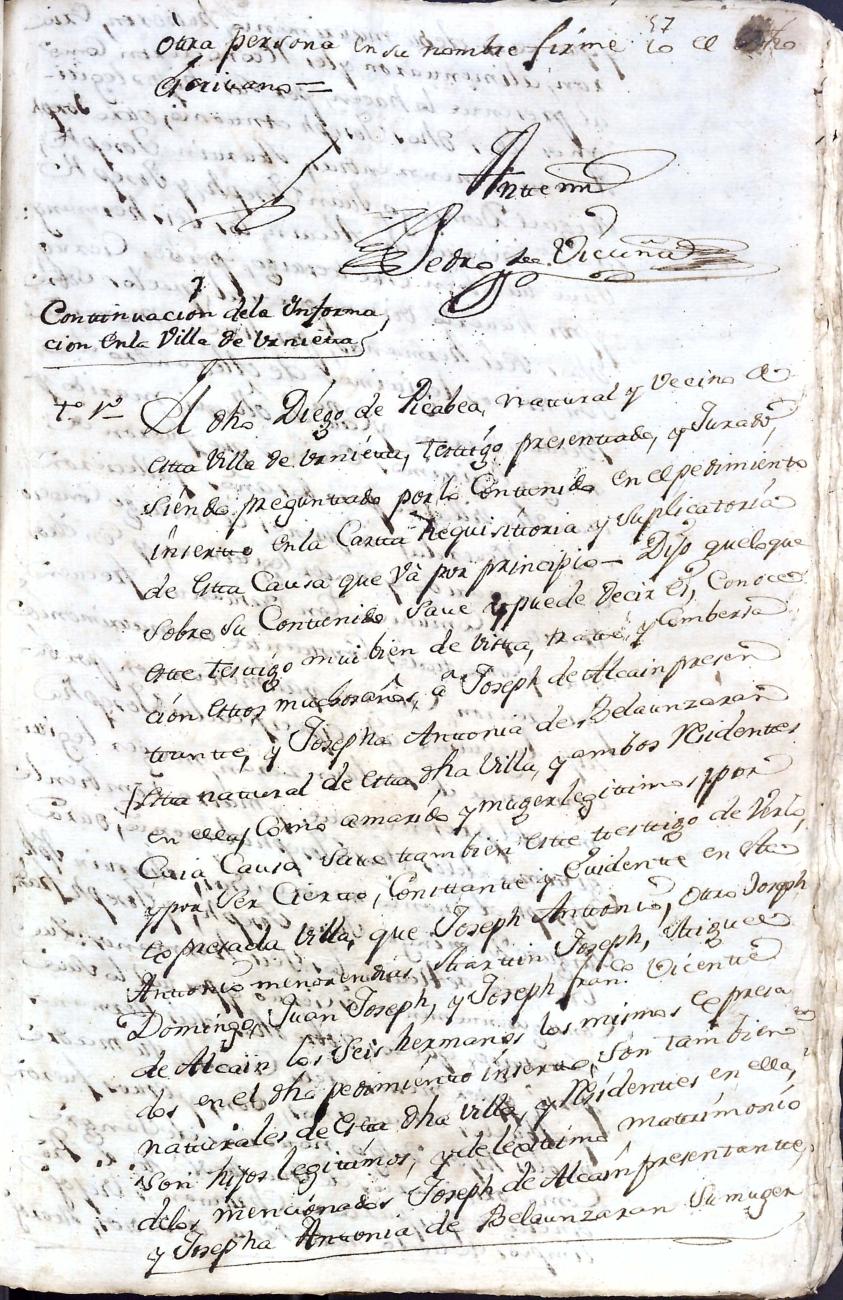 57
otra persona en su nombre firmé Yo el
Escrivano =
Ante mi
Pedro de Vicuña
Continuacion dela Informa
cion en la Villa de Urnieta
to 1o El dho Diego de Picabea, natural y Vecino de
esta Villa de Urnieta, testigo presentado, y Jurado,
siendo preguntado por lo Contenido en el pedimiento
inserto en la Carta Requisitoria y suplicatoria
de esta Causa que vâ por principio = Dijo que lo que
sobre su Contenido save y puede decir es, Conoce
este testigo mui bien de vista, trato, y Combersa
ción estos muchos años, â Joseph de Alcain presen
tante, y Josepha Antonia de Belaunzaran
esta natural de esta dha Villa, y ambos Residentes
en ella, Como a marido y muger legitimos, y por
Cuia Causa save tambien este testigo de verlo,
y por ser Cierto, Constante y evidente en esta
expresada Villa, que Joseph Antonio, otro Joseph
Antonio menor en dias, Martin Joseph, Miguel
Domingo, Juan Joseph, y Joseph Franco Vicente
de Alcain los seis hermanos los mismos expresa
dos en el dho pedimiento inserto, son tambien
naturales de esta dha villa, y Residentes en ella,
son hijos legitimos, y de lexitimo matrimonio
delos mencionados Joseph de Alcain presentante,
y Josepha Antonia de Belaunzaran su muger